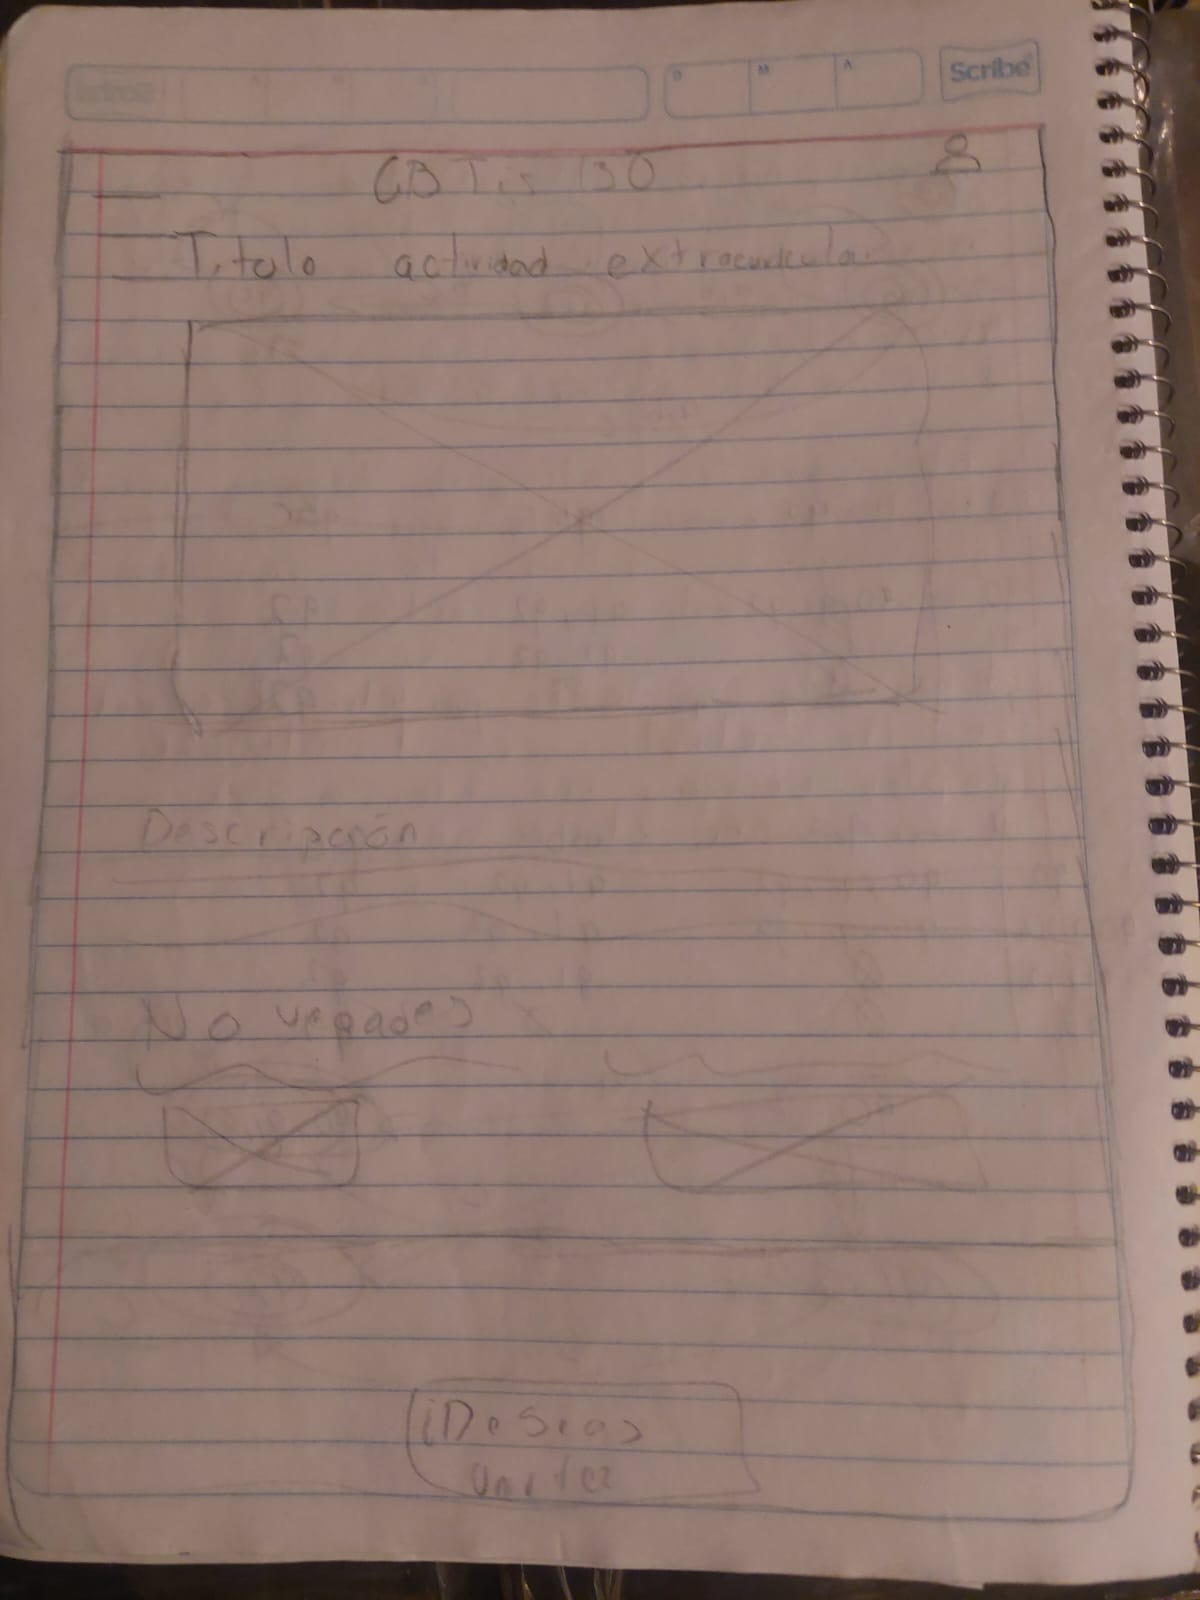 D M A Scribe
CBTis 130
Titulo actividad extracurricular
Descripción
Novedades
¡Deseas
unirte